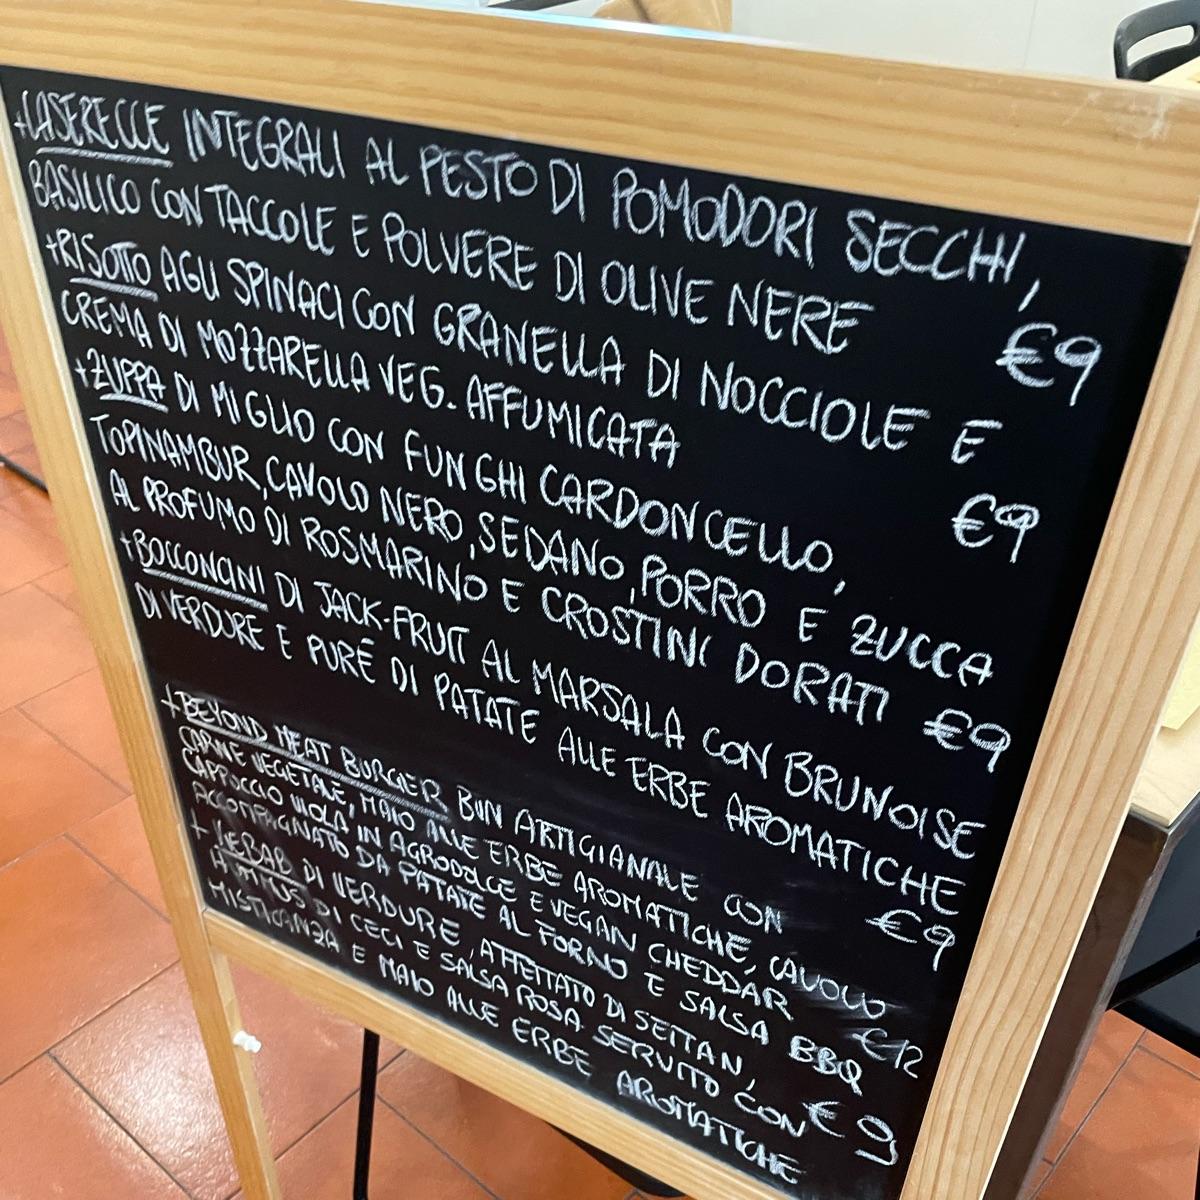 +CASERECCE INTEGRALI AL PESTO DI POMODORI SECCHI,
BASILICO CON TACCOLE E POLVERE DI OLIVE NERE €9
+RISOTTO AGLI SPINACI CON GRANELLA DI NOCCIOLE E
CREMA DI MOZZARELLA VEG. AFFUMICATA €9
+ZUPPA DI MIGLIO CON FUNGHI CARDONCELLO,
TOPINAMBUR, CAVOLO NERO, SEDANO, PORRO E ZUCCA
AL PROFUMO DI ROSMARINO E CROSTINI DORATI €9
+BOCCONCINI DI JACK-FRUIT AL MARSALA CON BRUNOISE
DI VERDURE E PURÉ DI PATATE ALLE ERBE AROMATICHE
€9
+BEYOND MEAT BURGER BUN ARTIGIANALE CON
CARNE VEGETALE, MAIO ALLE ERBE AROMATICHE, CAVOLO
CAPPUCCIO VIOLA IN AGRODOLCE E VEGAN CHEDDAR
ACCOMPAGNATO DA PATATE AL FORNO E SALSA BBQ €12
+KEBAB DI VERDURE, AFFETTATO DI SEITAN,
HUMMUS DI CECI E SALSA ROSA SERVITO CON €9
MISTICANZA E MAIO ALLE ERBE AROMATICHE